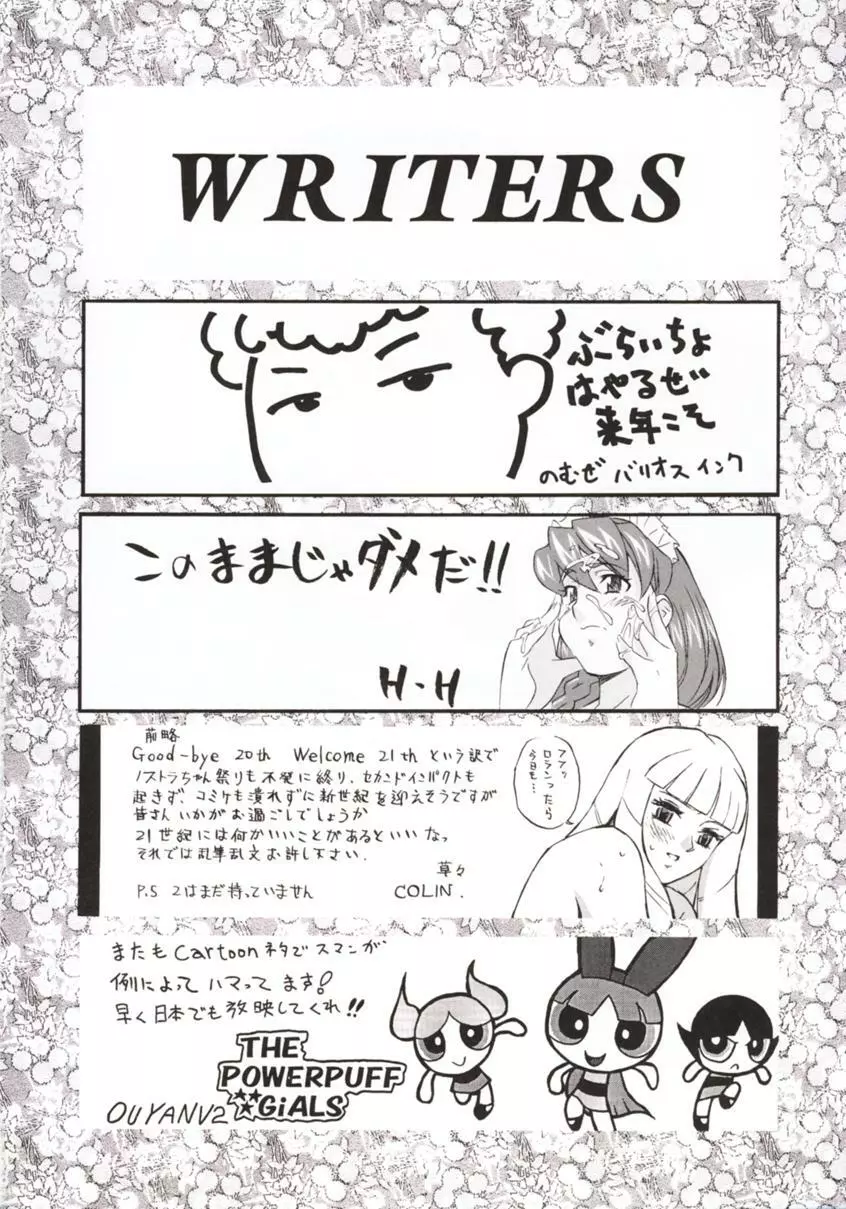 WRITERS
ぶらいちょ
はやるぜ
来年こそ
のむぜ バリオスインク
このままじゃダメだ!!
H・H
前略
Good-bye 20th Welcome 21th という訳で
ノストラちゃん祭りも不発に終り、セカンドインパクトも
起きず、コミケも潰れずに新世紀を迎えそうですが
皆さんいかがお過ごしでしょうか
21世紀には何かいいことがあるといいなっ
それでは乱筆乱文お許し下さい.
草々
P.S 2はまだ持っていません
COLIN.
アアッ
ロランったら
今日も…
またもCartoonネタでスマンが
例によってハマってます!
早く日本でも放映してくれ!!
THE
POWERPUFF
GiALS
OUYANV2